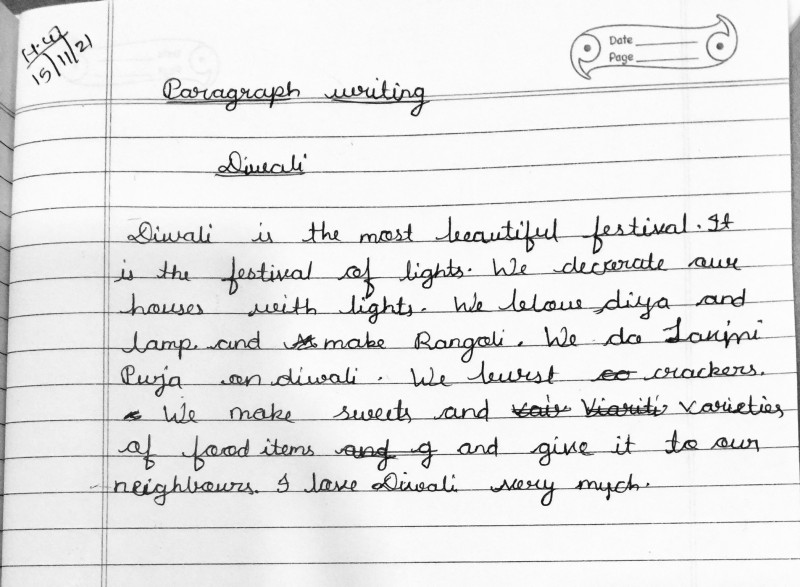 H.W
15/11/21
Date
Page
Paragraph writing
Diwali
Diwali is the most beautiful festival. It
is the festival of lights. We deckerate our
houses with lights. We blowe diya and
lamp. and make Rangoli. We do Laxjmi
Purja on diwali. We burst crackers.
We make sweets and vair Viariti varieties
of food items and g and give it to our
neighbours. I love Diwali very mych.